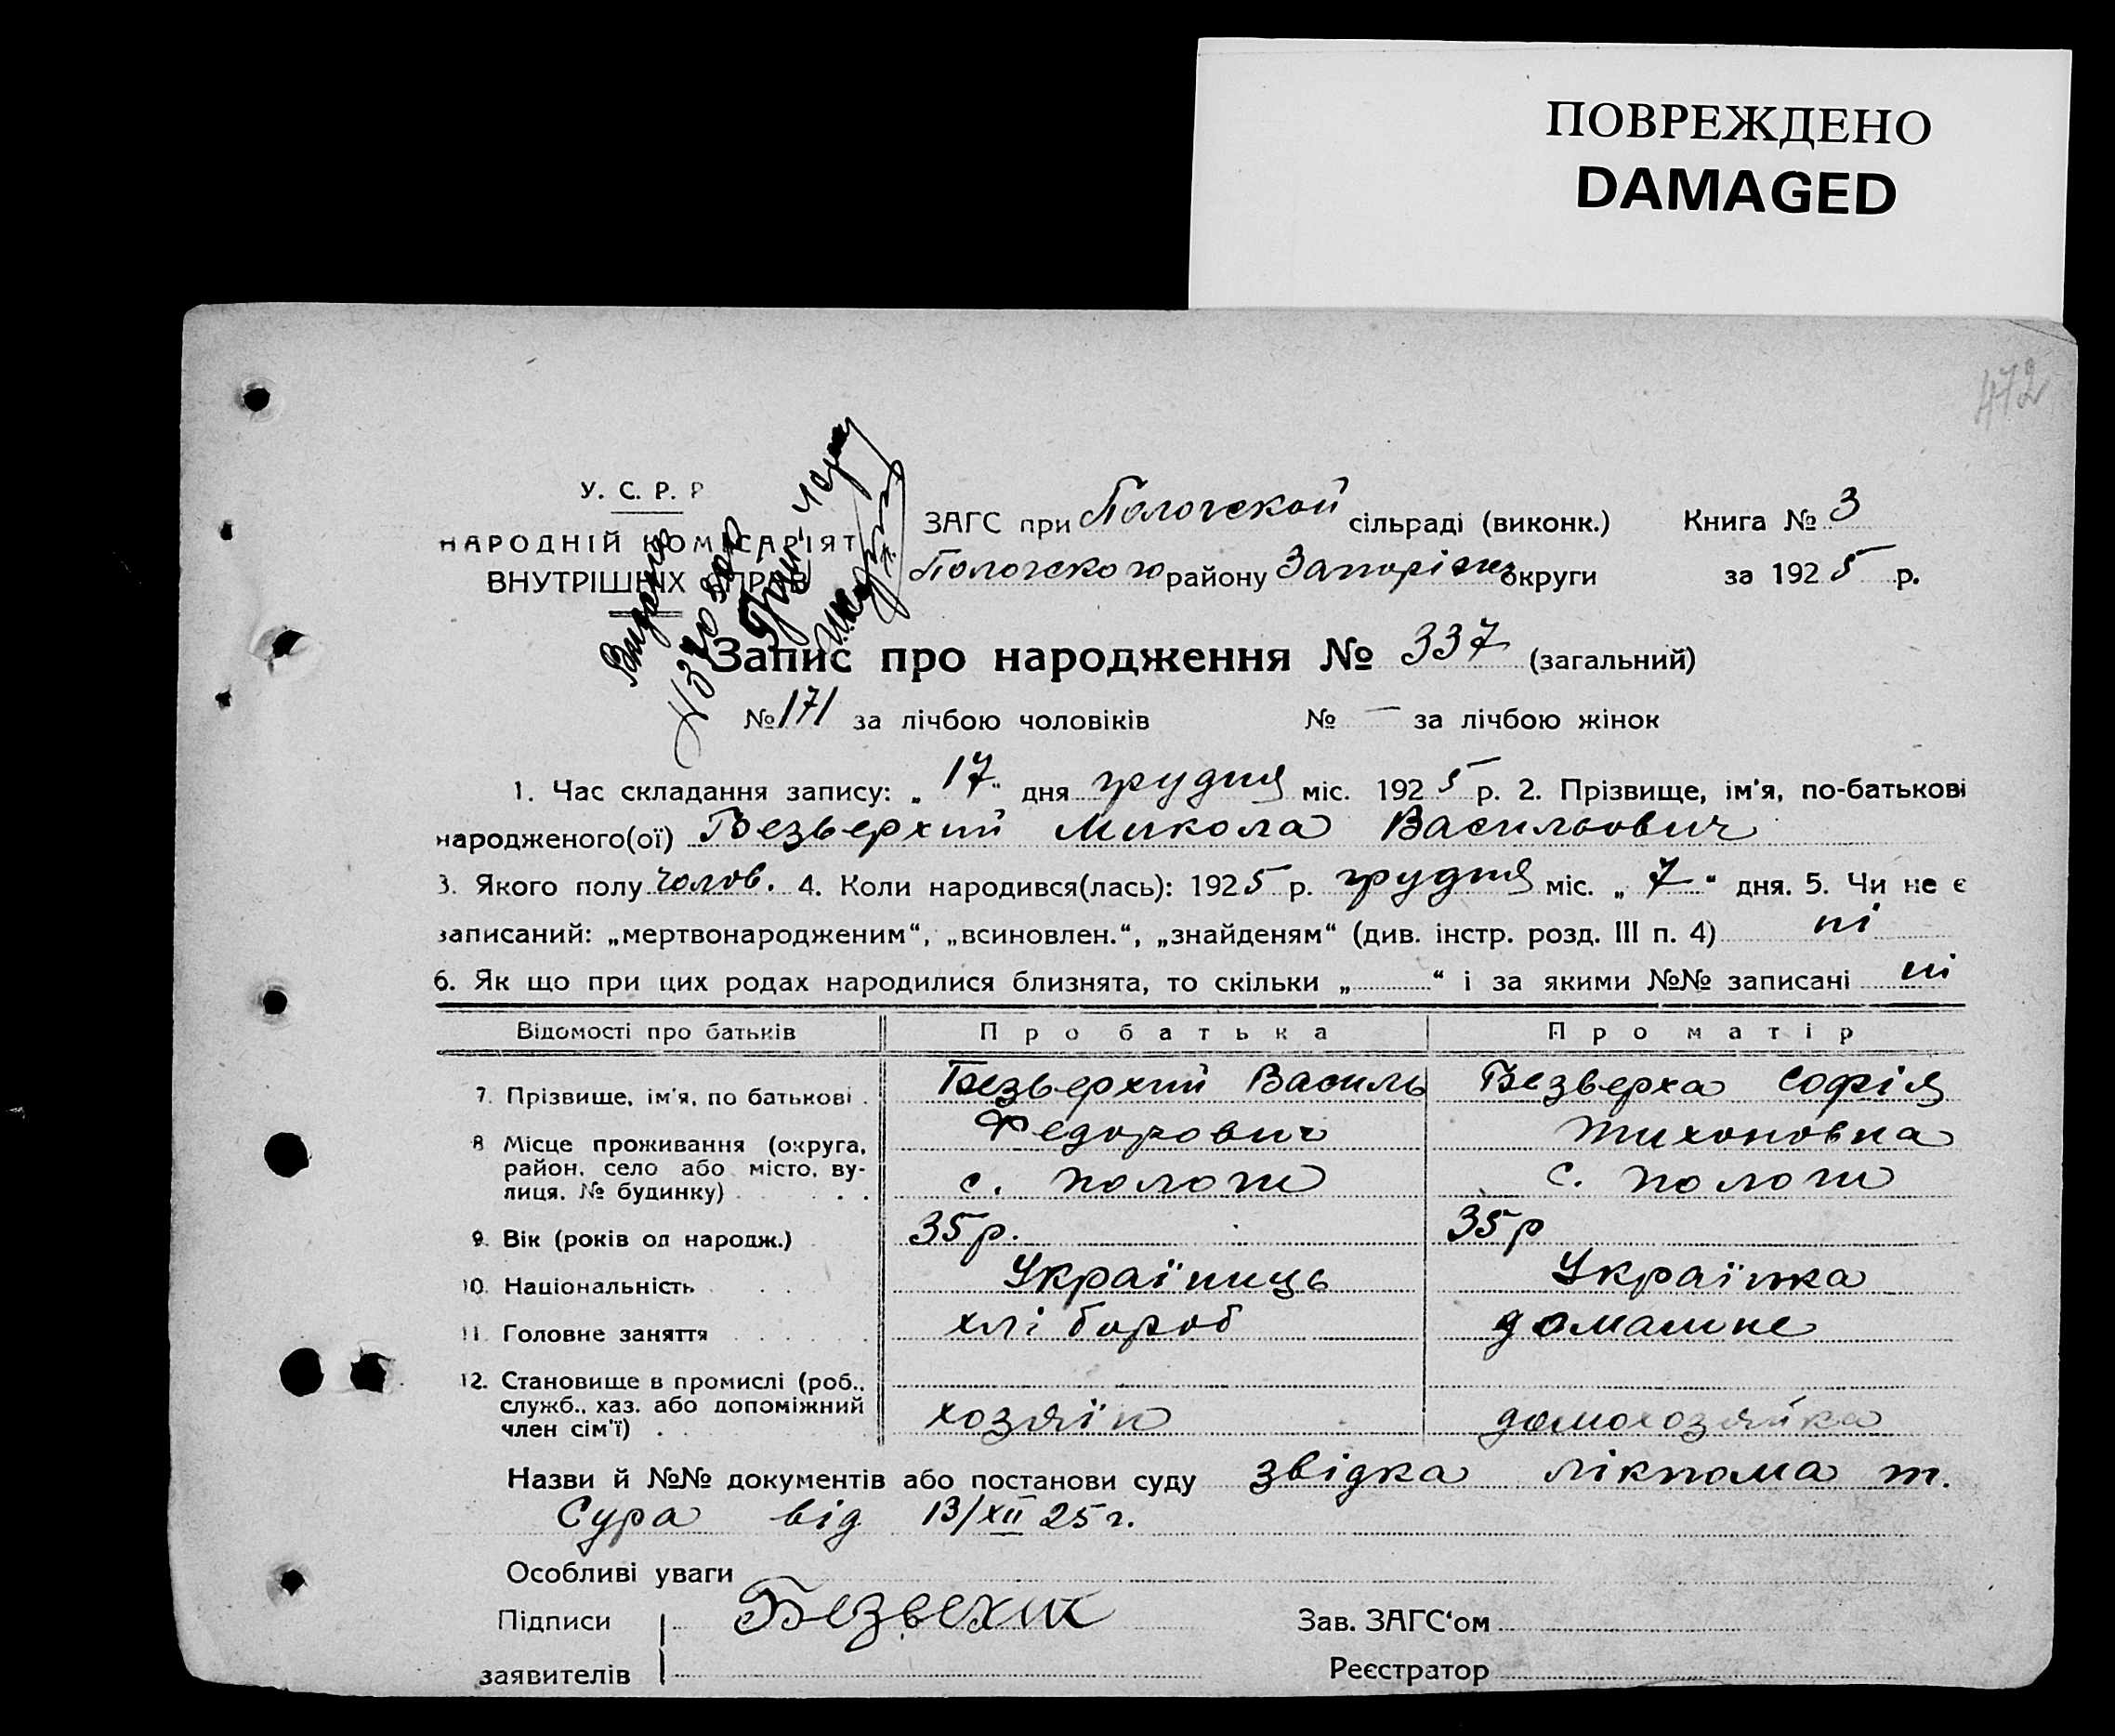 ПОВРЕЖДЕНО
DAMAGED
472
У. С. Р. Р
НАРОДНІЙ КОМІСАРІЯТ
ВНУТРІШНІХ СПРАВ
Видано
ЗАГС при Пологской сільраді (виконк.) Книга № 3
Пологского району Запоріжс округи за 1925 р.
Запис про народження № 337 (загальний)
№ 171 за лічбою чоловіків № — за лічбою жінок
1. Час складання запису: „17“ дня грудня міс. 1925 р. 2. Прізвище, ім'я, по-батькові
народженого(ої) Безверхий Микола Васильович
3. Якого полу чолов. 4. Коли народився(лась): 1925 р. грудня міс. „7“ дня. 5. Чи не є
записаний: „мертвонародженим“, „всиновлен.“, „знайденям“ (див. інстр. розд. III п. 4) ні
6. Як що при цих родах народилися близнята, то скільки „ “ і за якими №№ записані ні
Відомості про батьків Про батька Про матір
7. Прізвище, ім'я, по батькові . Безверхий Василь Безверха Софія
Федорович Тихоновна
8 Місце проживання (округа,
район, село або місто, ву-
лиця, № будинку) . . . с. Пологи с. Пологи
9. Вік (років од народж.) 35р. 35р
10. Національність . . . Українець Українка
11. Головне заняття . . . . . хлібороб домашне
12. Становище в промислі (роб.,
служб., хаз. або допоміжний
член сім'ї) . . хозяїн домохозяйка
Назви й №№ документів або постанови суду звідка лікпома т.
Сура від 13/XII 25 г.
Особливі уваги
Підписи Безвехик Зав. ЗАГС‘ом
заявителів Реєстратор